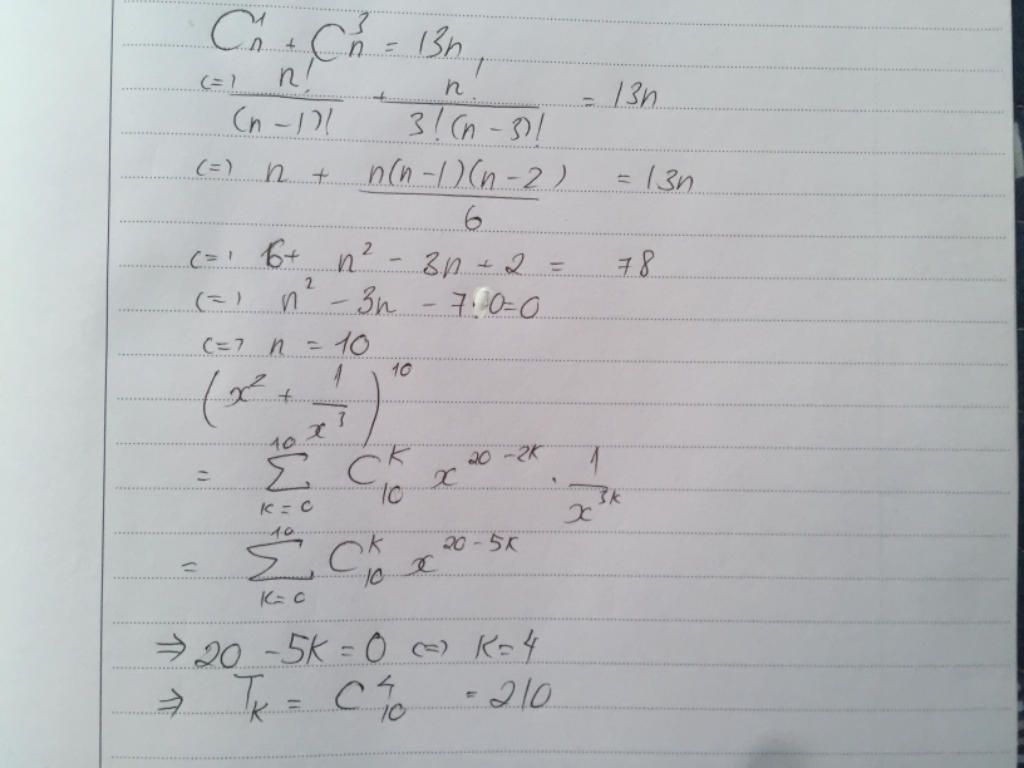 C_n^1 + C_n^3 = 13n
<=> n!/(n-1)! + n!/(3!(n-3)!) = 13n
<=> n + n(n-1)(n-2)/6 = 13n
<=> 6+ n² - 3n + 2 = 78
<=> n² - 3n - 70=0
<=> n = 10
(x² + 1/x³)^10
= Σ_{k=0}^{10} C_10^k x^{20-2k} · 1/x^{3k}
= Σ_{k=0}^{10} C_10^k x^{20-5k}
⇒ 20 - 5k = 0 <=> k = 4
⇒ T_k = C_10^4 = 210